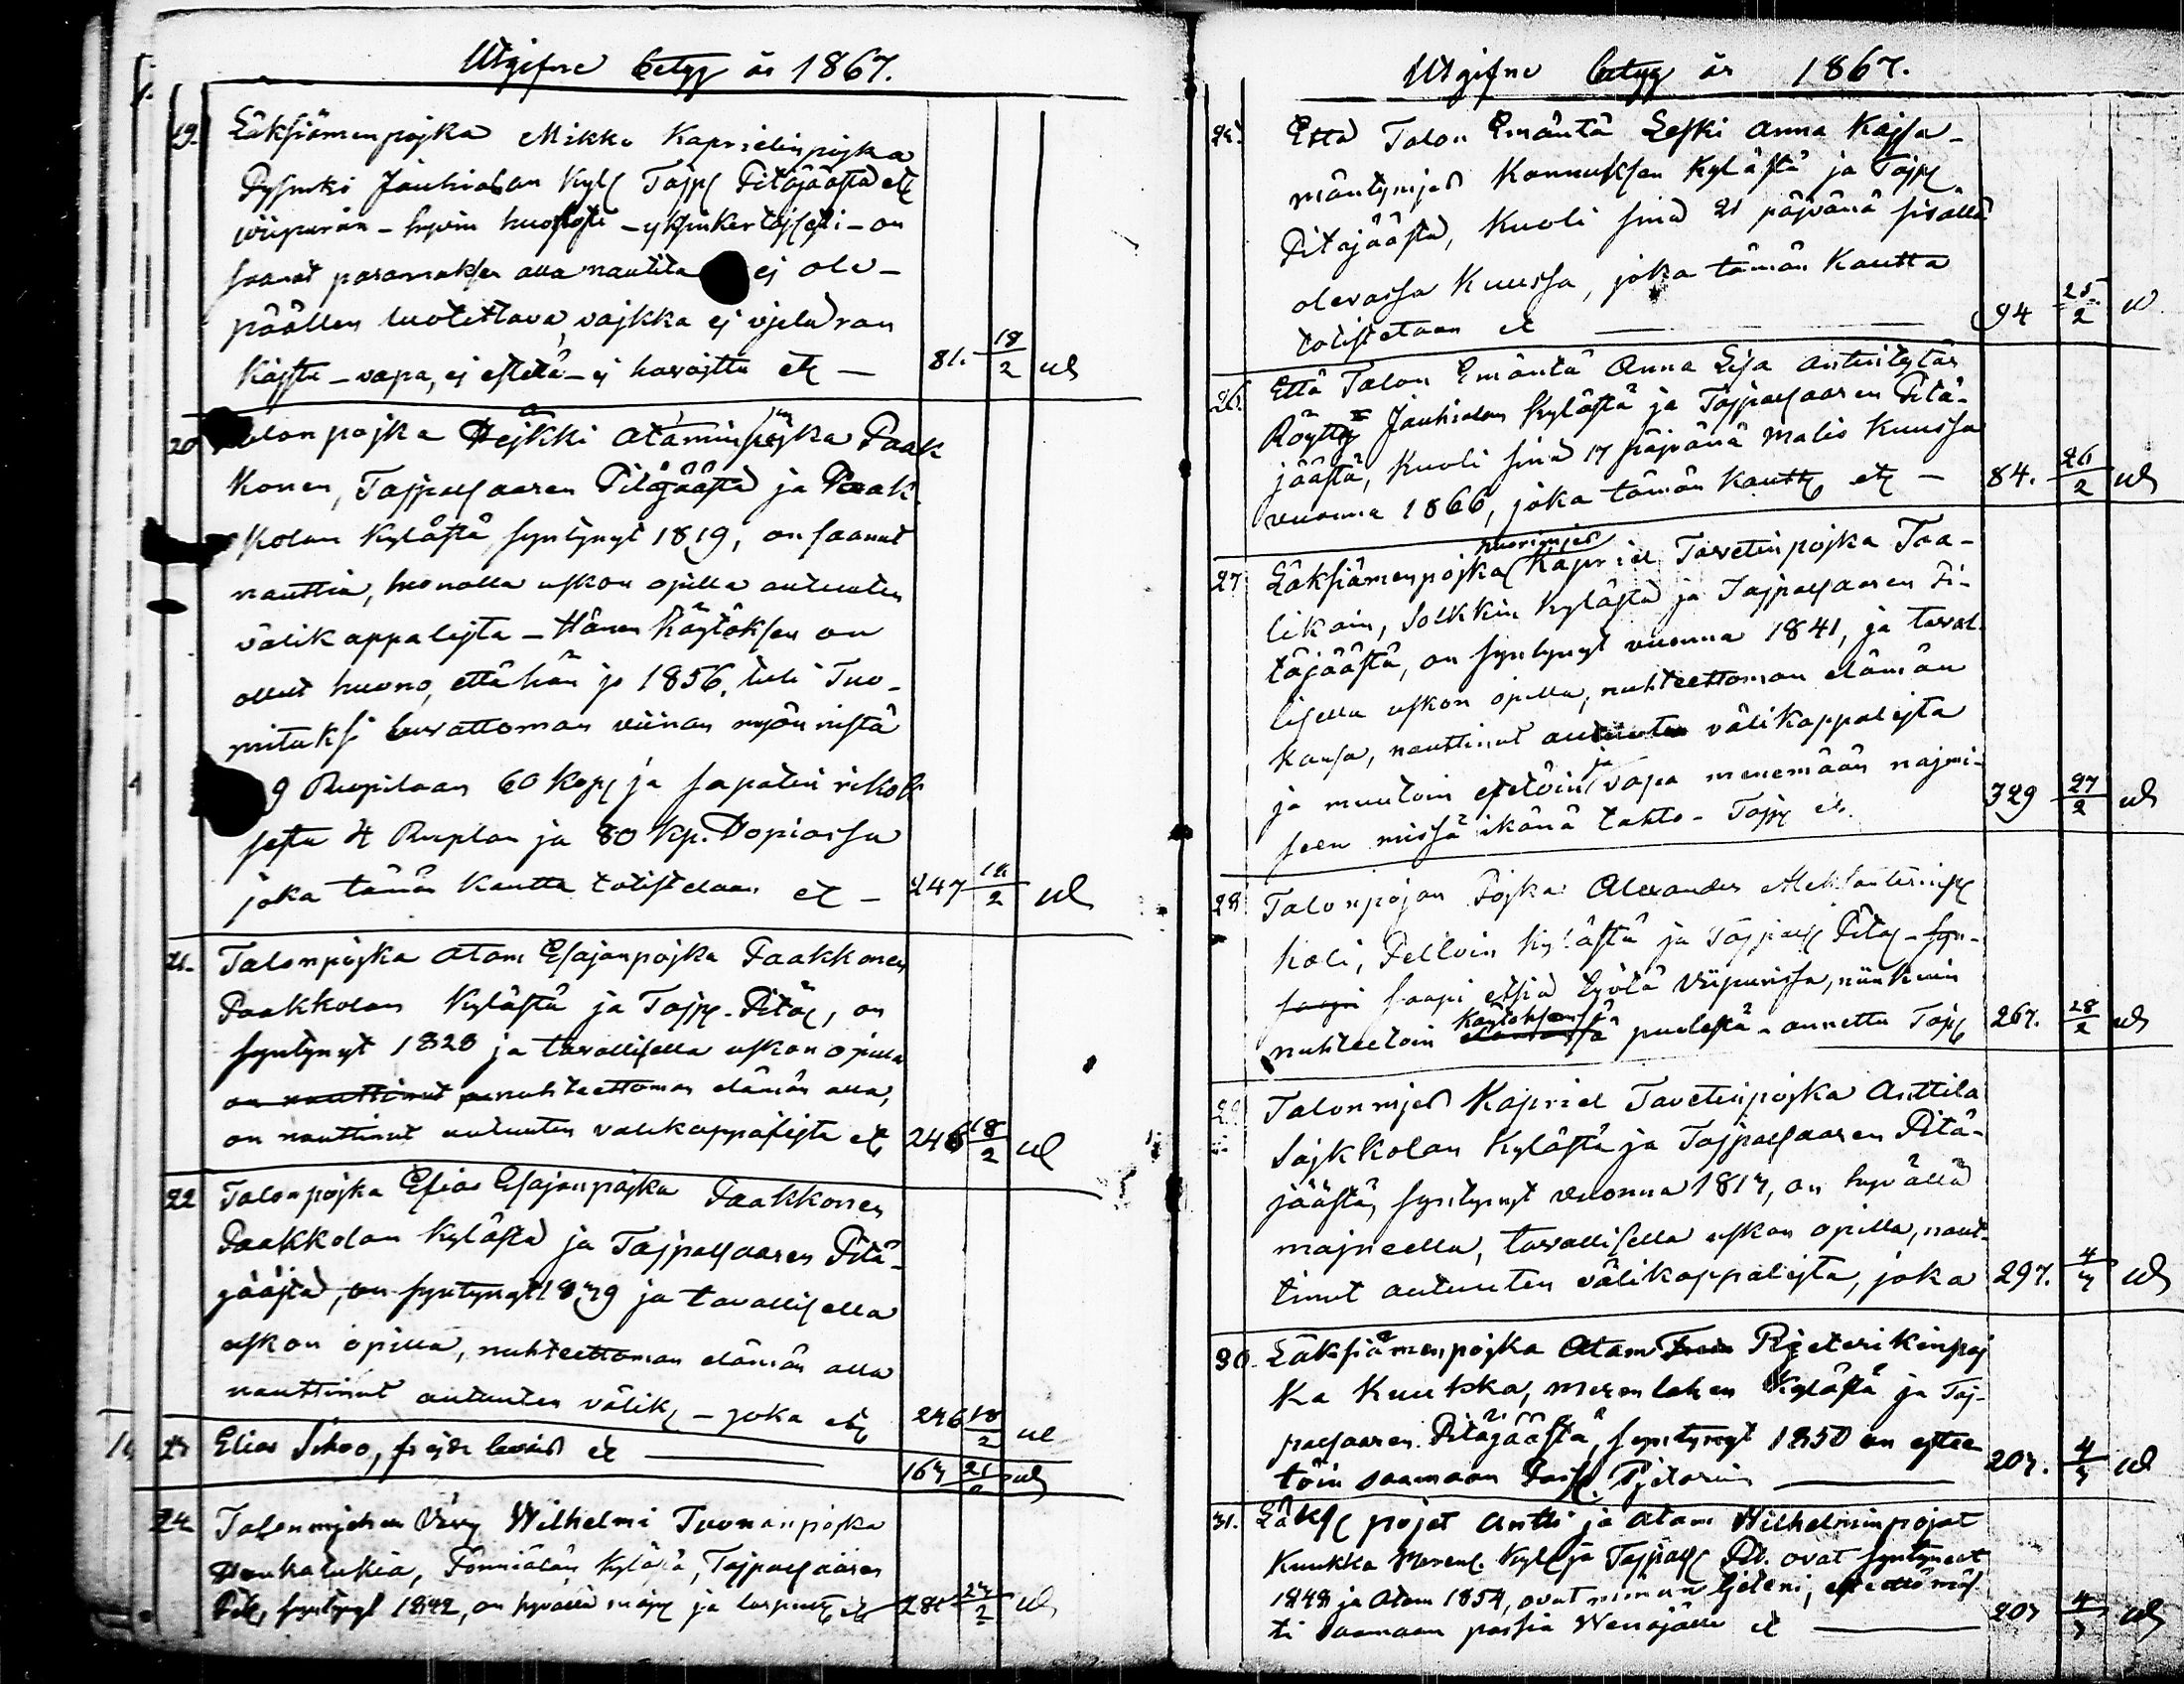 Utgifne betyg år 1867.
19. Läksiämenpojka Mikko Kaprielinpojka
Jauhialan Kyl Tajp Pitäjäästä etc
wiipuriin - hywin huonosti - yksinkertajsesti - on
saanut paramaksen alla nautita ej ole -
päällen luotettava, vajkka ej
Käystä - vapa, ej estetä - ej havajttu etc — 81. 18/2 ul
20 Talonpojka Hejkki Ataminpojka Paak
Konen, Tajpalsaaren Pitäjäästä ja Paak
kolan Kylästä, syntynyt 1819, on saanut
nauttia, huonolla uskon opilla autuuten
välikappalejsta - Hänen Käytöksen on
ollut huono, että hän jo 1856, tuli Tuo-
mituksi luvattoman viinan myönnistä
9 Ruplaan 60 Kop ja sapatin rikok
sesta 4 Ruplan ja 80 Kp. Hopiassa
joka tämän Kautta totistetaan etc — 247 18/2 ul
21. Talonpojka Atam Esajanpojka Paakkonen
Paakkolan Kylästä ja Tajp. Pitäj, on
syntynyt 1828 ja tavallisella uskon opilla
on nauttinut ja nuhteettoman elämän alla,
on nauttinut autuuten välikappalejsta etc 246 18/2 ul
22 Talonpojka Esias Esajanpojka Paakkonen
Paakkolan Kylästä ja Tajpalsaaren Pitä-
jäästä, on syntynyt 1839 ja tavallisella
uskon opilla, nuhteettoman elämän alla
nauttinut autuuten välik - joka etc 246 18/2 ul
23 Elias Sihvo, etc — 163 21/2 ul
24 Talonmiehen Vävy Wilhelmi Tuomanpojka
Haukatukia, Kylästä, Tajpalsaaren
Pit, syntynyt 1842, on hyvällä majn ja etc 285 23/2 ul
Utgifne betyg år 1867.
25. Että Talon Emäntä Leski Anna Kajsa
mäntymjes Konnuksen Kylästä ja Tajp
Pitäjäästä, Kuoli sinä 21 päjvänä sisällä
olevassa Kuussa, joka tämän Kautta
totistetaan etc — 94 25/2 ul
26. Että Talon Emäntä Anna Lisa Antintytär
Röytty Jauhialan Kylästä ja Tajpalsaaren Pitä-
jäästä, Kuoli sinä 17 päjvänä Malis Kuussa
vuonna 1866, joka tämän Kautt etc — 84. 26/2 ul
27 Läksiämenpojka nuorimjes Kapriel Tavetinpojka Taa-
likain, Solkkin Kylästä ja Tajpalsaaren Pi-
täjäästä, on syntynyt vuonna 1841, ja taval-
lisella uskon opilla, nuhteettoman elämän
kansa, nauttinut autuuten välikappalejsta
ja muutoin estetöin ja vapa menemään najmi-
seen missä ikänä tahto - Tajp etc. 329 27/2 ul
28 Talonpojan Pojka Alexander Aleksanterinp
holi, Peltoin Kylästä ja Tajpals Pitäj - syn-
saapi saapi etsiä työtä Viipurissa, niinkuin
nuhteetoin Käytöksensä elämänsä puolesta - annettu Tajp 267. 28/2 ul
29 Talonmjes Kapriel Tavetinpojka Anttila
Sajkkolan Kylästä ja Tajpalsaaren Pitä-
jäästä, syntynyt vuonna 1817, on hyvällä
majneella, tavallisella uskon opilla, naut-
tinut autuuten välikappalejsta, joka 297. 4/3 ul
30. Läksiämenpojka Atam Pjeterikinpoj
ka Kuukka, Merenlahen Kylästä ja Taj-
palsaaren Pitäjäästä, syntynyt 1850 on estee
töin saamaan Pass. Pjetariin — 203. 4/3 ul
31. Läks pojat Antti ja Atam Wilhelminpojat
Kuukka Merenl. Kyl ja Tajpals Pit. ovat syntyneet
1848 ja Atam 1854, ovat minun tjeteni, esteettömäs
ti saamaan passia Wenäjälle etc — 203 4/3 ul